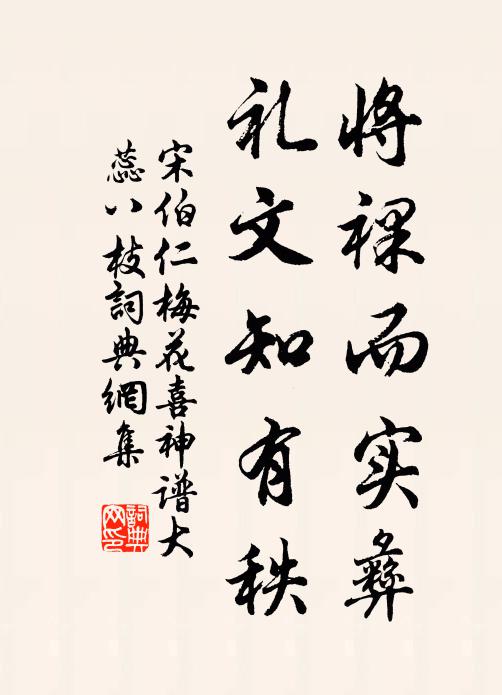 将祼而实彝
礼文知有秩
宋伯仁梅花喜神谱大
蕊八枝詞典網集
詞典网印